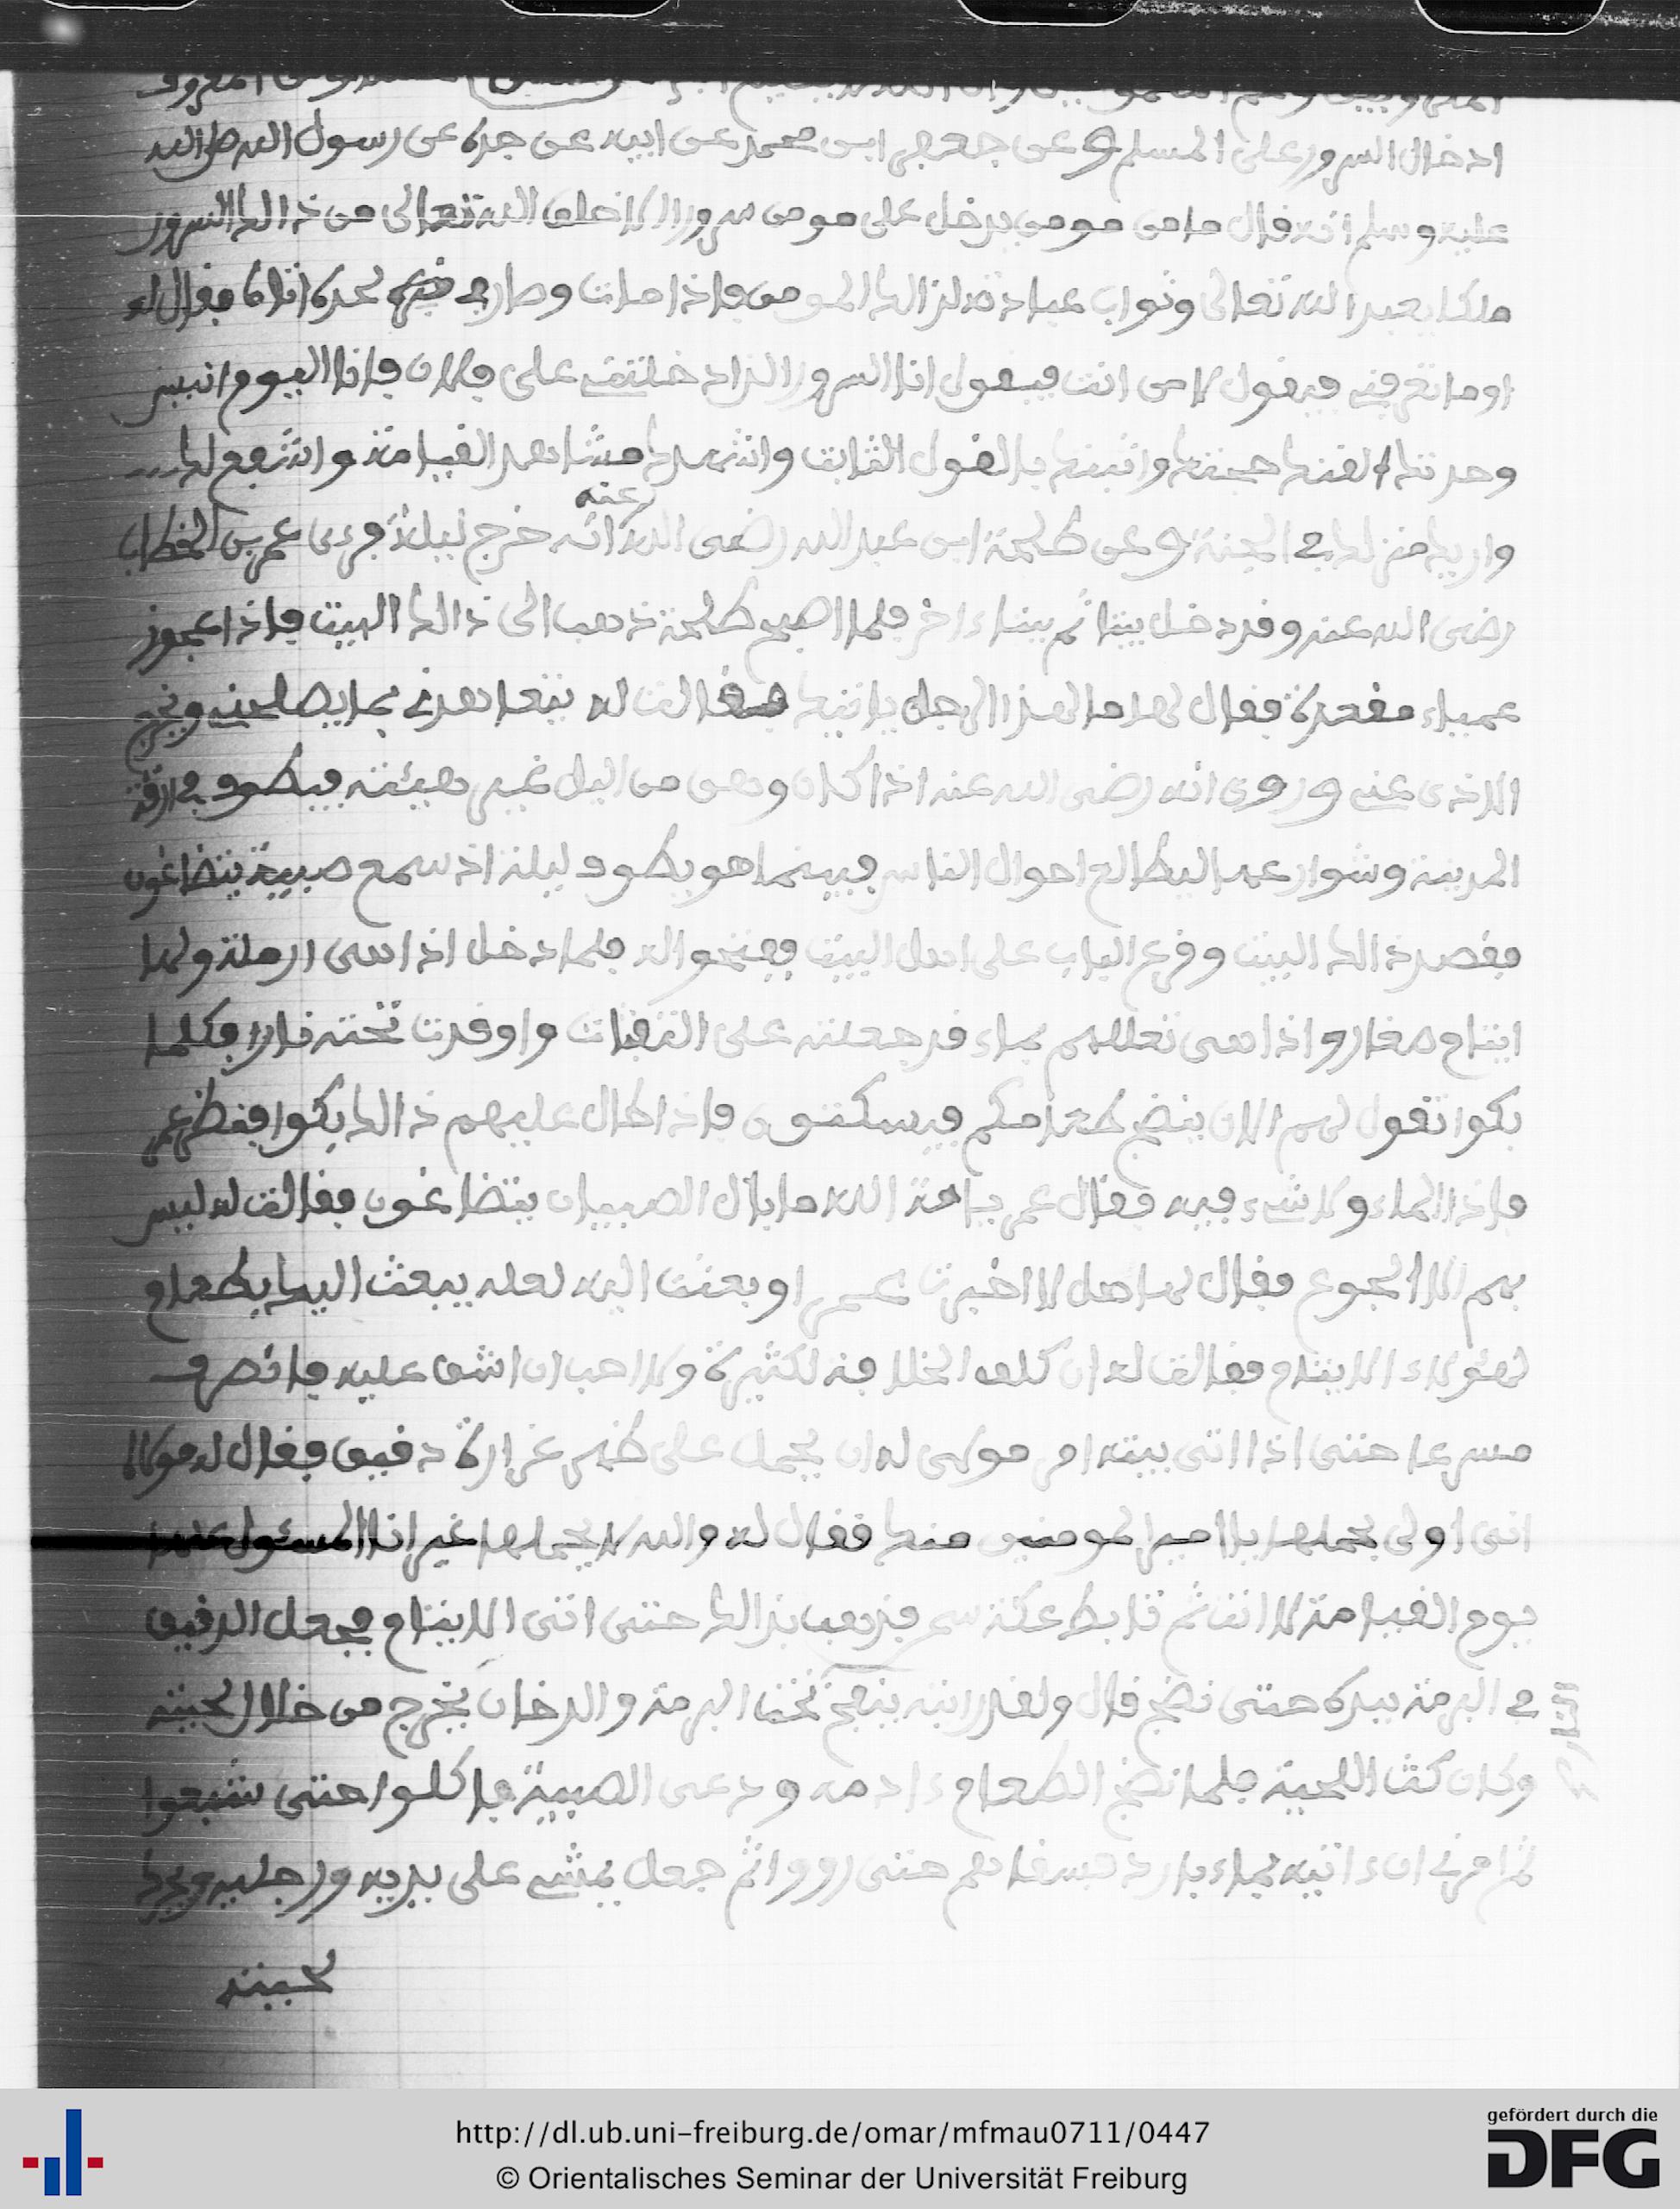 ادخال السرور على المسلم وعن جعفر ابن محمد عن ابيه عن جده عن رسول الله صلى الله
عليه وسلم انه قال ما من مومن يدخل على مومن سرورا الا خلق الله تعالى من ذالك السرور
ملكا يعبد الله تعالى وثواب عبادته لذالك المومن فاذا مات وصار في لحده اتاه فقال له
اوما تعرفني فيقول لا من انت فيقول انا السرور الذي ادخلتني على فلان فانا اليوم انيس
وحدتك القنك حجتك واثبتك بالقول الثابت واشهد بك مشاهد القيامة واشفع لك
واريك منزلك في الجنة وعن طلحة ابن عبد الله رضى الله عنه انه خرج ليلة فرءى عمر بن الخطاب
رضى الله عنه وقد دخل بيتا ثم بيتاءاخر فلما اصبح طلحة ذهب الى ذالك البيت فاذا عجوز
عمياء مقعدة فقال لها ما لهذا الرجل ياتيك فقالت له يتعاهدني بما يصلحني ويخرج
الاذى عني وروى انه رضى الله عنه اذا كان وهن من اليل غير هيئته فيطوف في ازقة
المدينة وشوارعها ليطالع احوال الناس فبينما هو يطوف ليلة اذ سمع صبية يتضاغون
فقصد ذالك البيت وقرع الباب على اهل البيت ففتحوا له فلما دخل اذا هى ارملة ولها
ايتام صغار واذا هى تعللهم بماء قد جعلته على الثفات واوقدت تحته نارا فكلما
بكوا تقول لهم الان ينضج طعامكم فيسكتون فاذا طال عليهم ذالك بكوا فنظر عمر
فاذا الماء ولا شيء فيه فقال عمر يا امة الله ما بال الصبيان يتضاغون فقالت له ليس
بهم الا الجوع فقال لها هل لا اخبرت عمر او بعثت اليه لعله يبعث اليك بطعام
لهئولاء الايتام فقالت له ان كلف الخلافة لكثيرة ولا احب ان اشق عليه فانصرف
مسرعا حتى اذا اتى بيته امر مولى له ان يحمل على ظهره غرارة دقيق فقال له مولاه
انى اولى بحملها يا امير المومنين منك فقال له والله لا يحملها غير انا المسئول عنها
يوم القيامة لا انت ثم تابط عكة سمن فذهب بذالك حتى اتى الايتام فجعل الدقيق
في البرمة بيده حتى نضج قال ولقد رايته ينفخ تحت البرمة والدخان يخرج من خلال لحيته
النار
وكان كث اللحية فلما نضج الطعام ءادمه ودعى الصبية فاكلوا حتى شبعوا
ثم امرني ان ءاتيه بماء بارد فسقاهم حتى رووا ثم جعل يمشي على يديه ورجليه ويدلى
لحيته
http://dl.ub.uni-freiburg.de/omar/mfmau0711/0447
© Orientalisches Seminar der Universität Freiburg
gefördert durch die
DFG